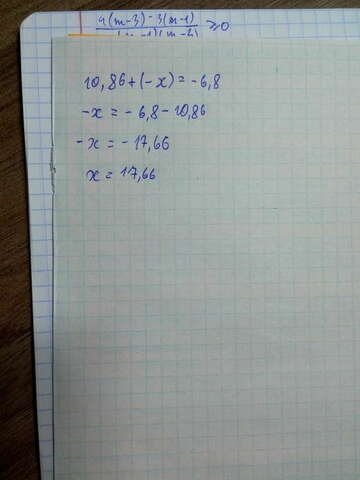 4(m-3)-3(m-1) ≥ 0
10,86+(-x)=-6,8
-x = -6,8-10,86
-x = -17,66
x = 17,66